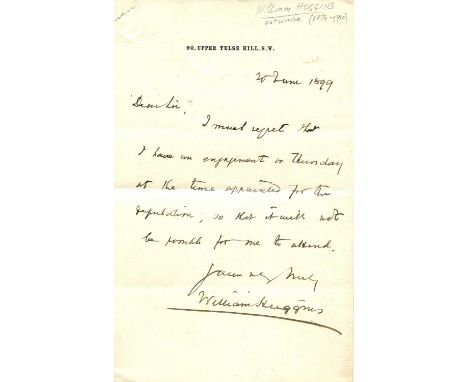 William HUGGINS
astronomer (1824-1910)
90, UPPER TULSE HILL. S.W.
20 June 1899
Dear Sir,
I must regret that
I have an engagement on Thursday
at the time appointed for the
deputation, so that it will not
be possible for me to attend.
Yours very truly
William Huggins